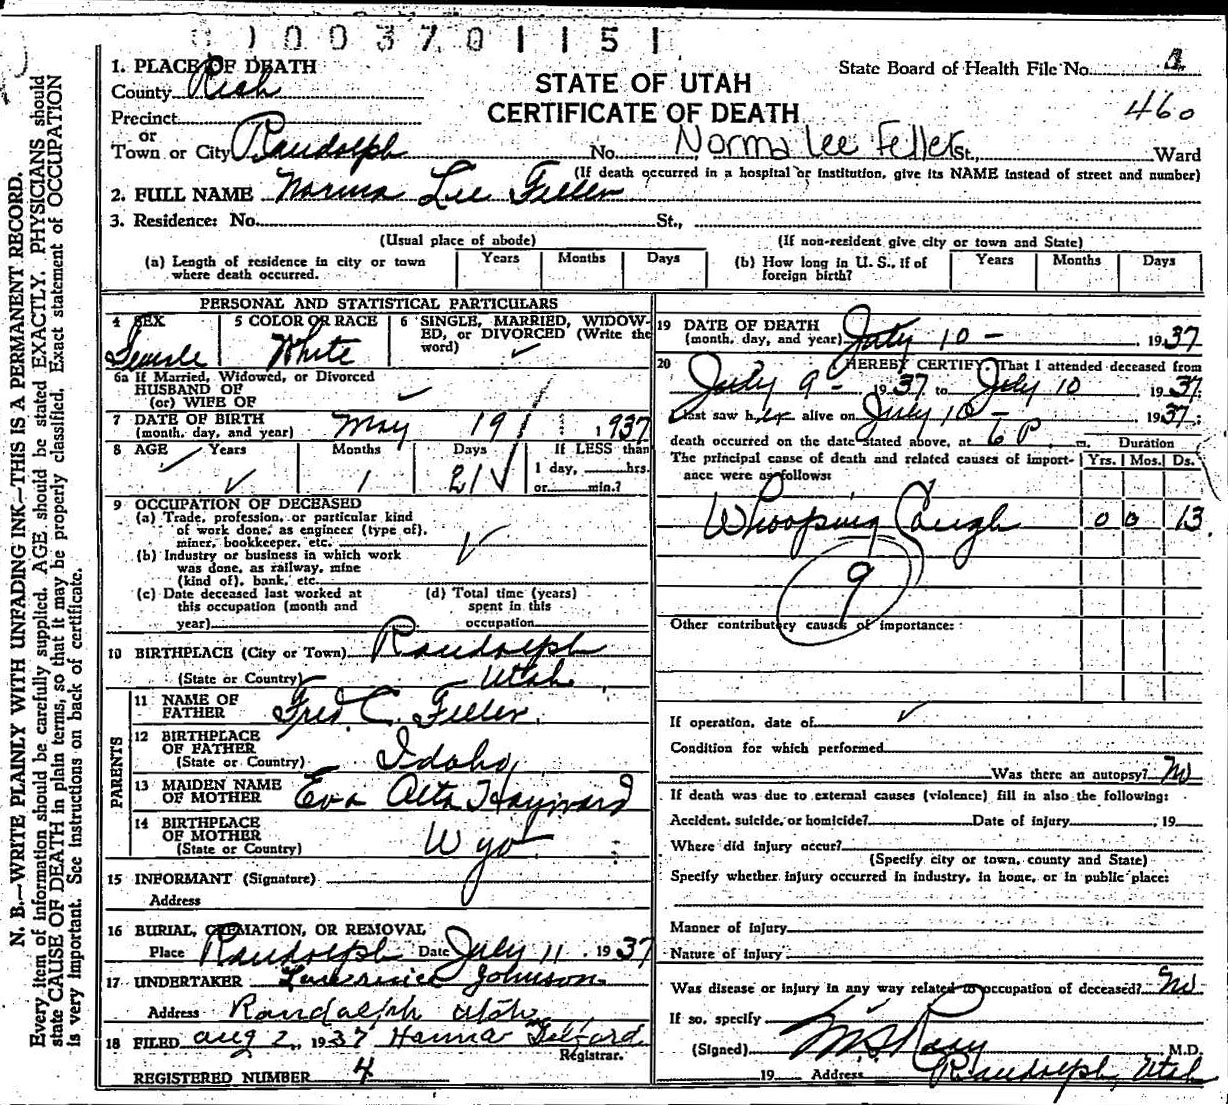 0 0 3 7 0 1 1 5 1
1. PLACE OF DEATH
County Rich
Precinct
or
Town or City Randolph
STATE OF UTAH
CERTIFICATE OF DEATH
State Board of Health File No.
460
No. Norma Lee Feller St., Ward
(If death occurred in a hospital or institution, give its NAME instead of street and number)
2. FULL NAME Norma Lee Feller
3. Residence: No. St.,
(Usual place of abode) (If non-resident give city or town and State)
(a) Length of residence in city or town where death occurred. Years Months Days
(b) How long in U. S., if of foreign birth? Years Months Days
PERSONAL AND STATISTICAL PARTICULARS
4 SEX Female
5 COLOR OR RACE White
6 SINGLE, MARRIED, WIDOWED, or DIVORCED (Write the word) ✓
6a If Married, Widowed, or Divorced
HUSBAND OF
(or) WIFE OF ✓
7 DATE OF BIRTH
(month, day, and year) May 19 1937
8 AGE Years Months Days If LESS than
✓ 1 21 1 day, hrs.
or min.?
9 OCCUPATION OF DECEASED
(a) Trade, profession, or particular kind
of work done, as engineer (type of),
miner, bookkeeper, etc.
(b) Industry or business in which work
was done, as railway, mine
(kind of), bank, etc.
(c) Date deceased last worked at
this occupation (month and
year)
(d) Total time (years)
spent in this
occupation
10 BIRTHPLACE (City or Town) Randolph
(State or Country) Utah
PARENTS
11 NAME OF
FATHER Fred C. Feller
12 BIRTHPLACE
OF FATHER
(State or Country) Idaho
13 MAIDEN NAME
OF MOTHER Eva Alta Hayward
14 BIRTHPLACE
OF MOTHER
(State or Country) Wyo
15 INFORMANT (Signature)
Address
16 BURIAL, CREMATION, OR REMOVAL
Place Randolph Date July 11, 1937
17 UNDERTAKER Lawrence Johnson
Address Randolph Utah
18 FILED Aug 2, 1937 Hanna Telford
Registrar.
REGISTERED NUMBER 4
19 DATE OF DEATH
(month, day, and year) July 10 - 1937
20 I HEREBY CERTIFY, That I attended deceased from
July 9 - 1937 to July 10, 1937
I last saw her alive on July 10 - 1937;
death occurred on the date stated above, at 6 P. m. Duration
The principal cause of death and related causes of importance were as follows: Yrs. Mos. Ds.
Whooping Cough 0 0 13
9
Other contributory causes of importance:
If operation, date of ✓
Condition for which performed
Was there an autopsy? No
If death was due to external causes (violence) fill in also the following:
Accident, suicide, or homicide? Date of injury , 19
Where did injury occur?
(Specify city or town, county and State)
Specify whether injury occurred in industry, in home, or in public place:
Manner of injury
Nature of injury
Was disease or injury in any way related to occupation of deceased? No
If so, specify
(Signed) M.D.
19 Address Randolph, Utah
N. B.—WRITE PLAINLY WITH UNFADING INK—THIS IS A PERMANENT RECORD.
Every item of information should be carefully supplied. AGE should be stated EXACTLY. PHYSICIANS should
state CAUSE OF DEATH in plain terms, so that it may be properly classified. Exact statement of OCCUPATION
is very important. See instructions on back of certificate.